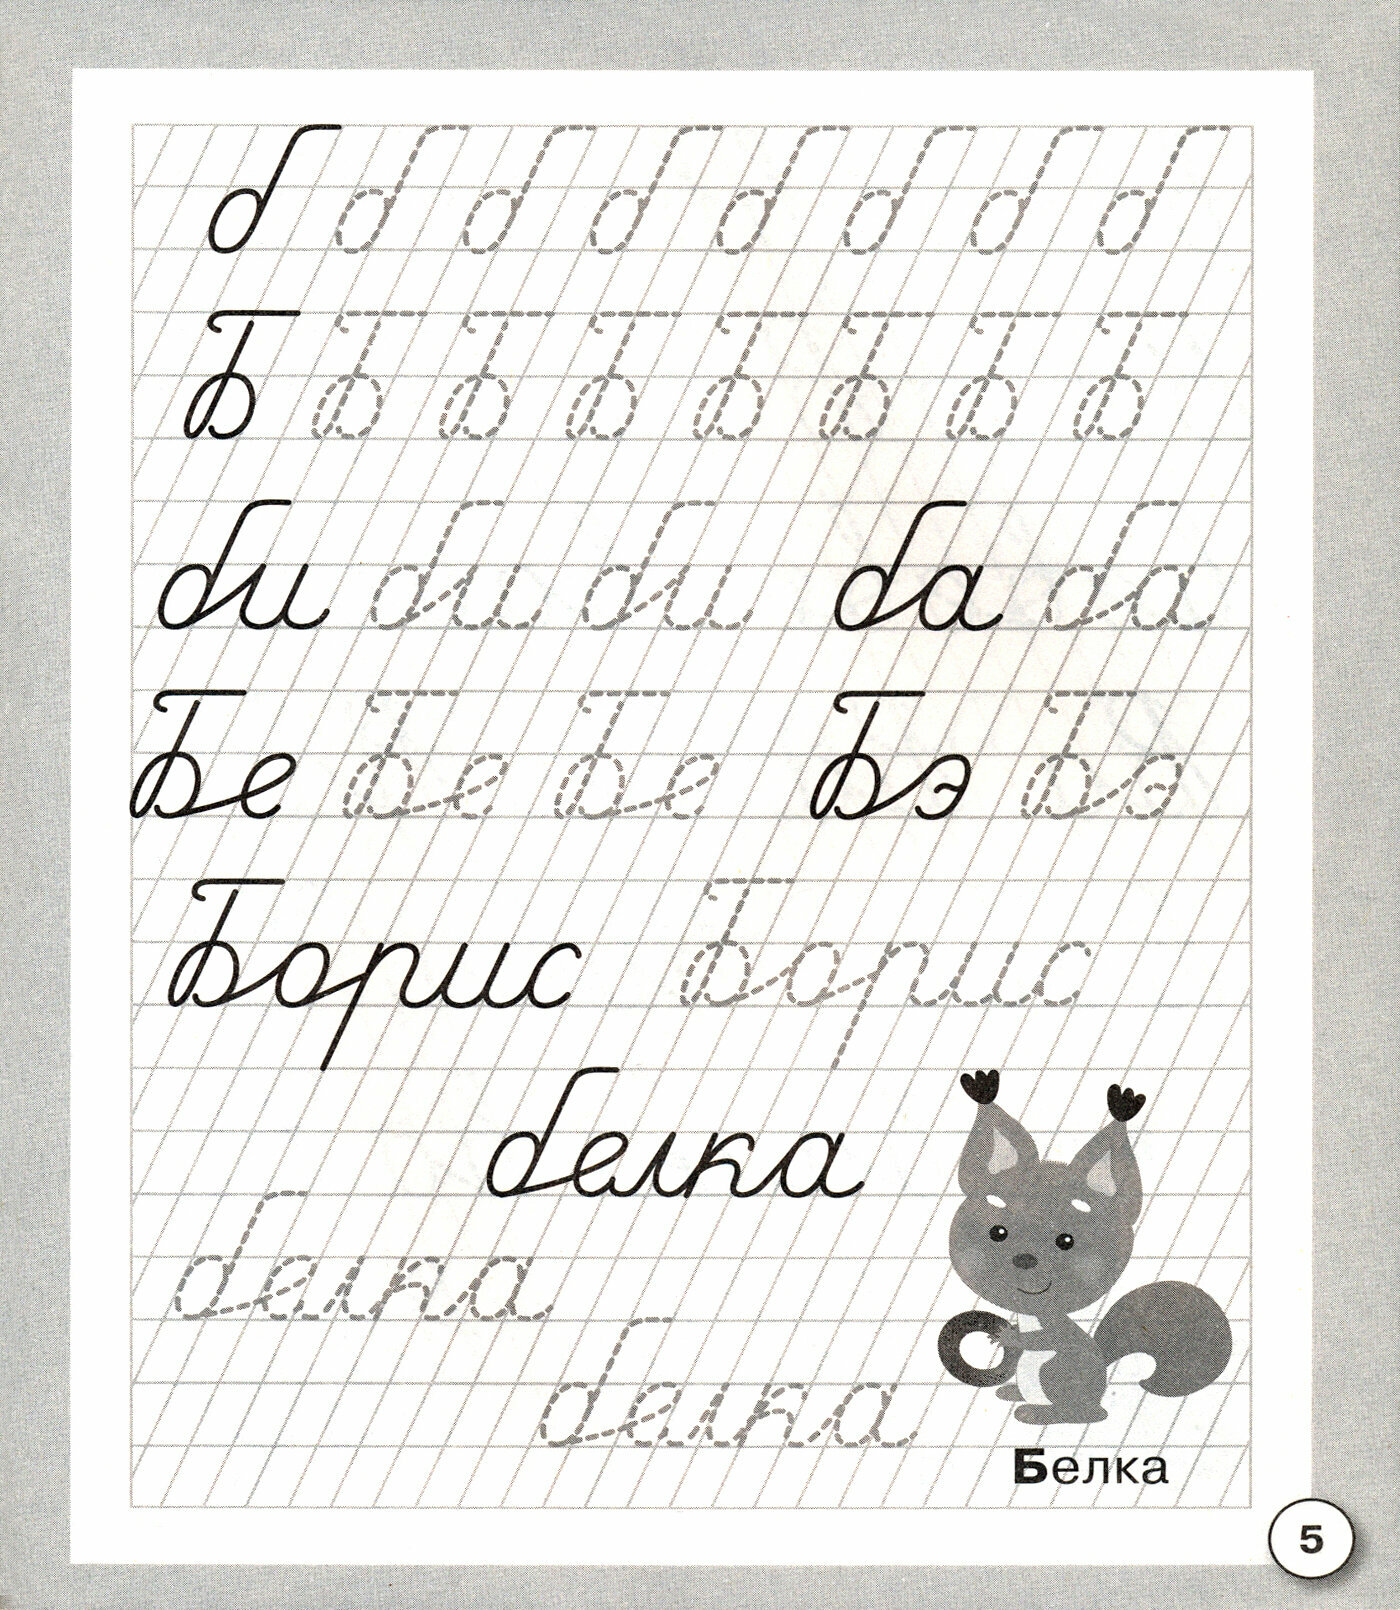 б б б б б б б б
Б Б Б Б Б Б Б Б
би би би ба ба
Бе Бе Бе Бэ Бэ
Борис Борис
белка
белка
белка
Белка
5